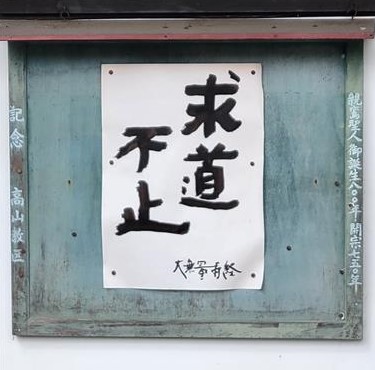 親鸞聖人御誕生八〇〇年 開宗七五〇年
求道
不止
大無量寿経
記念 高山教区